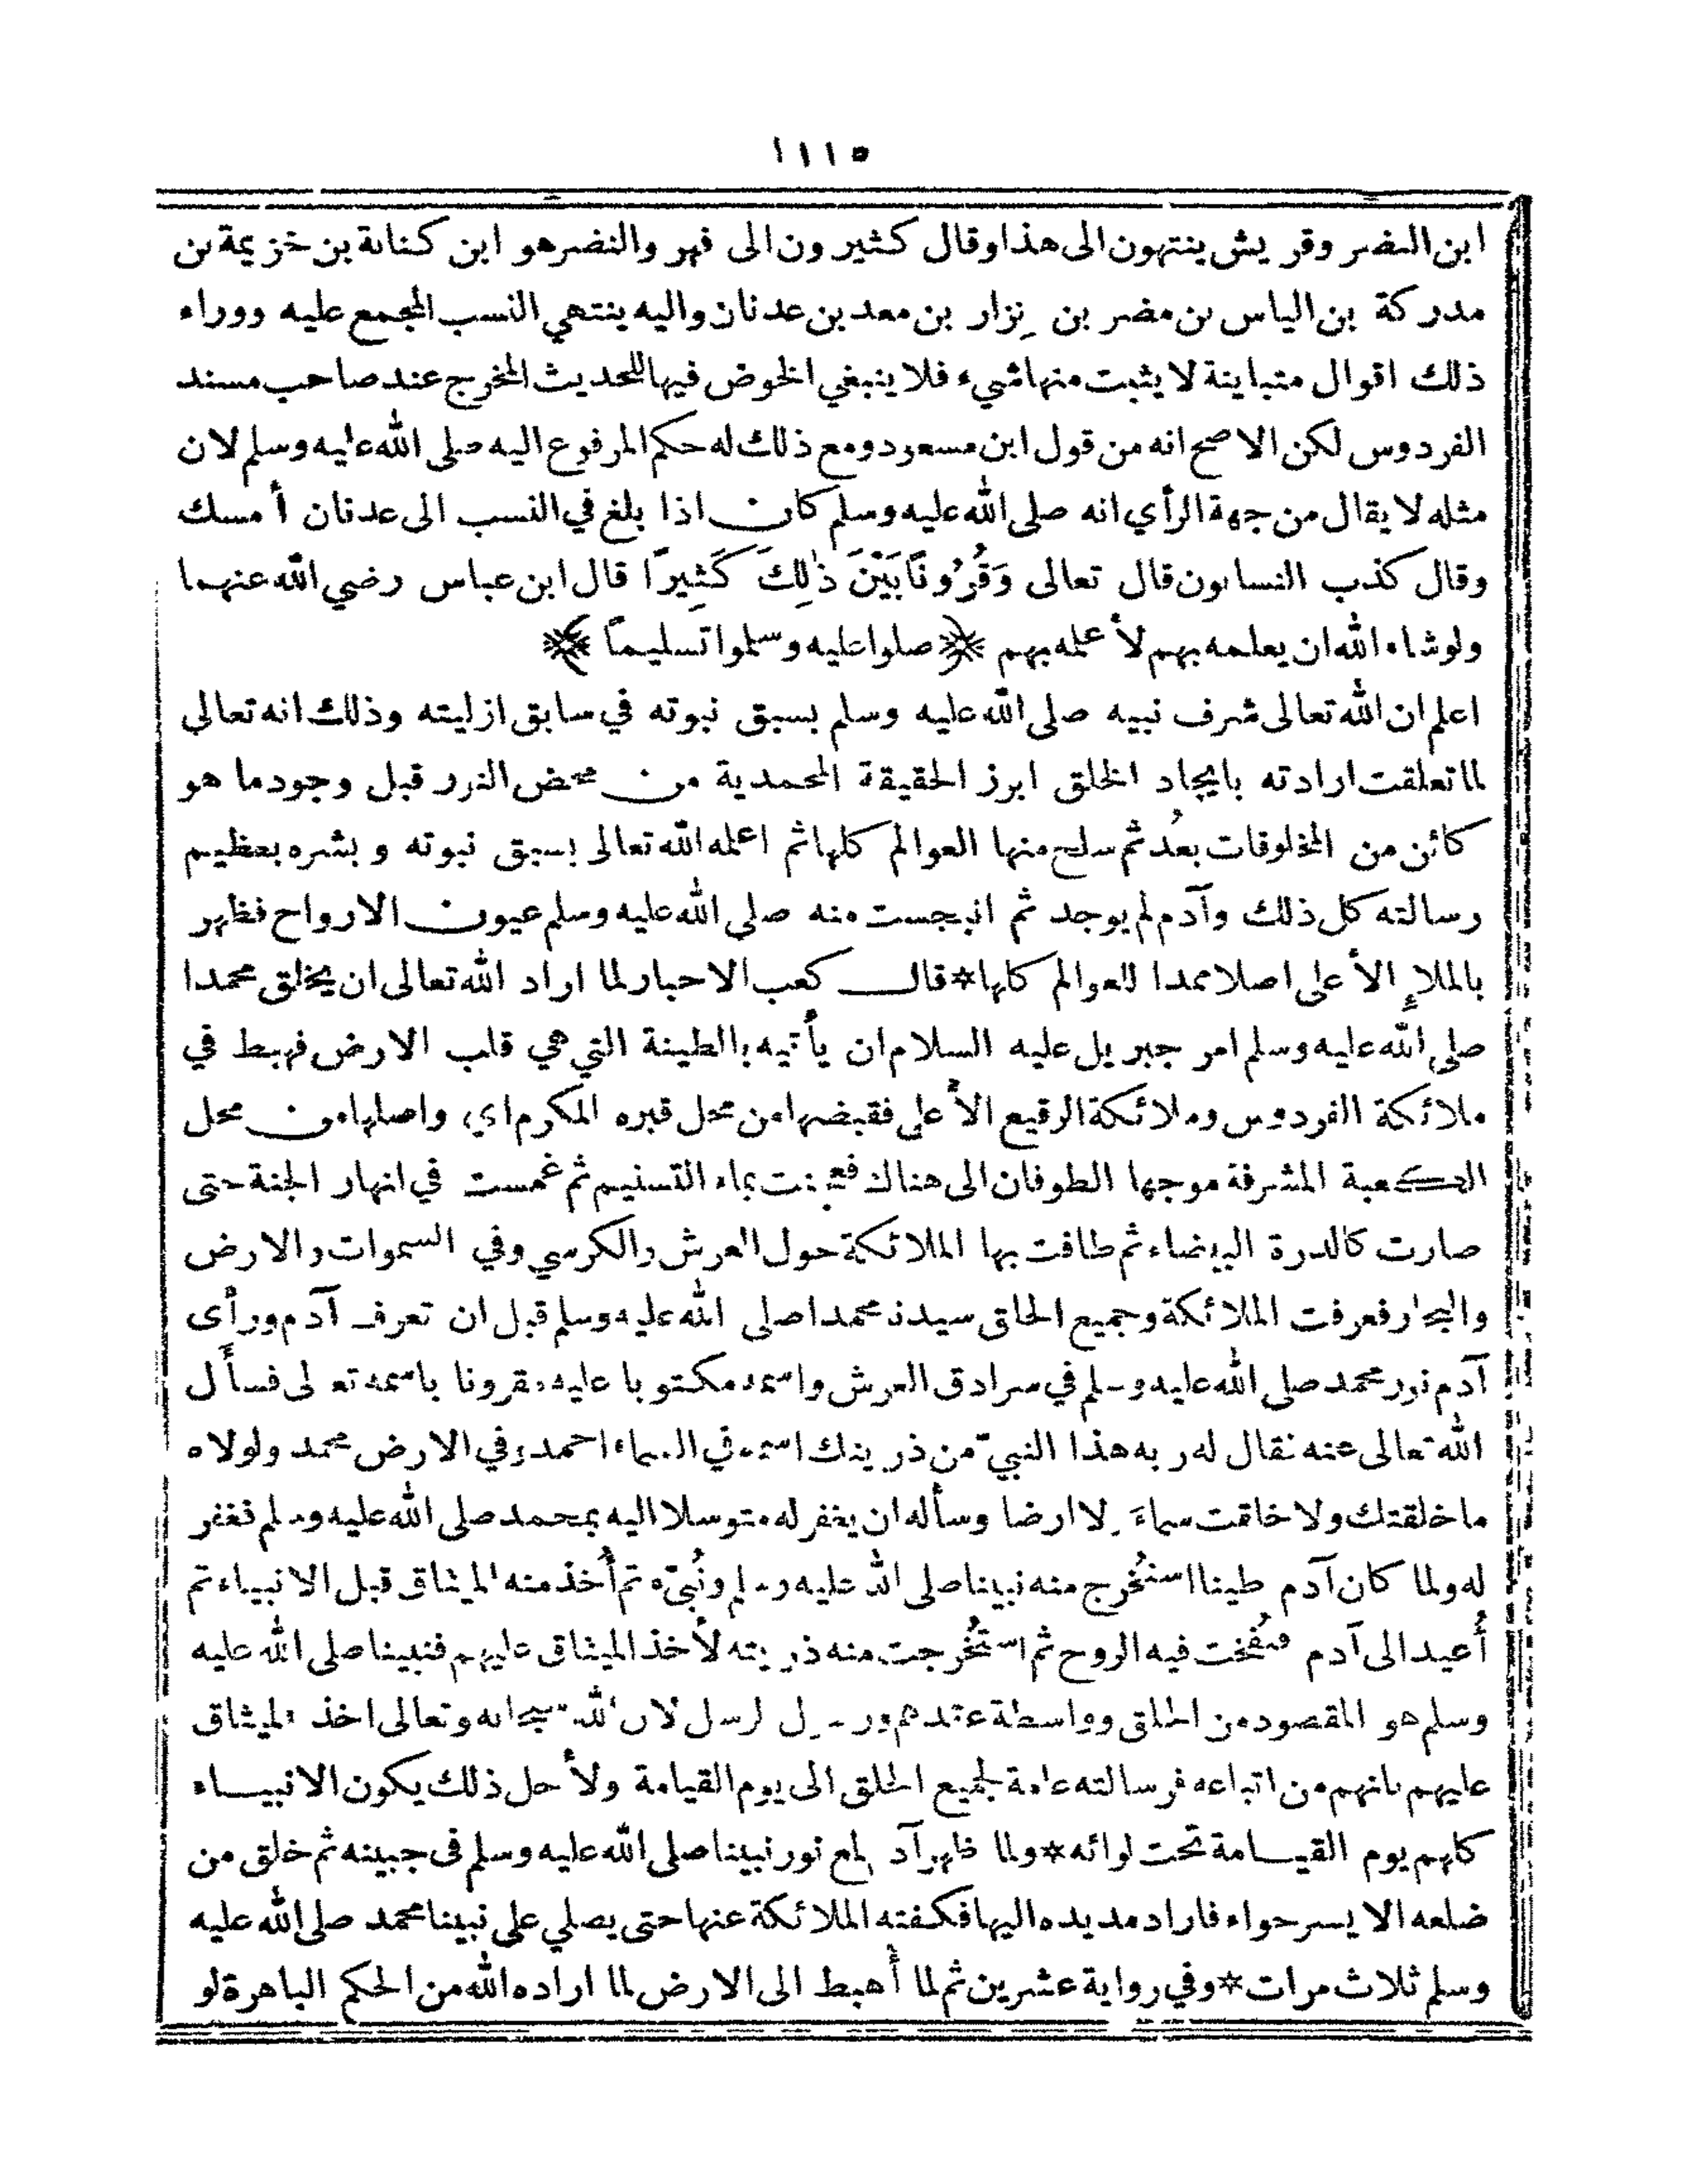 ١١١٥
ابن النضر وقريش ينتهون الى هذا وقال كثيرون الى فهر والنضر هو ابن كنانة بن خزيمة بن
مدركة بن الياس بن مضر بن نِزار بن معد بن عدنان واليه ينتهي النسب المجمع عليه ووراء
ذلك اقوال متباينة لا يثبت منها شيء فلا ينبغي الخوض فيها للحديث المخرج عند صاحب مسند
الفردوس لكن الاصح انه من قول ابن مسعود ومع ذلك له حكم المرفوع اليه صلى الله عليه وسلم لان
مثله لا يقال من جهة الرأي انه صلى الله عليه وسلم كان اذا بلغ في النسب الى عدنان أمسك
وقال كذب النسابون قال تعالى وَقُرُونًا بَيْنَ ذٰلِكَ كَثِيرًا قال ابن عباس رضي الله عنهما
ولو شاء الله ان يعلمه بهم لأعلمه بهم ﴿ صلوا عليه وسلموا تسليماً ﴾
اعلم ان الله تعالى شرف نبيه صلى الله عليه وسلم بسبق نبوته في سابق ازليته وذلك انه تعالى
لما تعلقت ارادته بايجاد الخلق ابرز الحقيقة المحمدية من محض النور قبل وجود ما هو
كائن من المخلوقات بعدُ ثم سلخ منها العوالم كلها ثم اعلمه الله تعالى بسبق نبوته وبشره بعظيم
رسالته كل ذلك وآدم لم يوجد ثم انبجست منه صلى الله عليه وسلم عيون الارواح فظهر
بالملإ الأعلى اصلا ممدا للعوالم كلها * قال كعب الاحبار لما اراد الله تعالى ان يخلق محمدا
صلى الله عليه وسلم امر جبريل عليه السلام ان يأتيه بالطينة التي هي قلب الارض فهبط في
ملائكة الفردوس وملائكة الرقيع الأعلى فقبضها من محل قبره المكرم اي واصلها من محل
الكعبة المشرفة موجها الطوفان الى هناك فعجنت بماء التسنيم ثم غمست في انهار الجنة حتى
صارت كالدرة البيضاء ثم طافت بها الملائكة حول العرش والكرسي وفي السموات والارض
والبحار فعرفت الملائكة وجميع الخلق سيدنا محمدا صلى الله عليه وسلم قبل ان تعرف آدم ورأى
آدم نور محمد صلى الله عليه وسلم في سرادق العرش واسمه مكتوبا عليه مقرونا باسمه تعالى فسأل
الله تعالى عنه فقال له ربه هذا النبيّ من ذريتك اسمه في السماء احمد وفي الارض محمد ولولاه
ما خلقتك ولا خلقت سماءً ولا ارضا وسأله ان يغفر له متوسلا اليه بمحمد صلى الله عليه وسلم فغفر
له ولما كان آدم طينا استُخرج منه نبينا صلى الله عليه وسلم ونُبّئ ثم أُخذ منه الميثاق قبل الانبياء ثم
أُعيد الى آدم فنُفخت فيه الروح ثم استُخرجت منه ذريته لأخذ الميثاق عليهم فنبينا صلى الله عليه
وسلم هو المقصود من الخلق وواسطة عقدهم ورسول الرسل لان الله سبحانه وتعالى اخذ الميثاق
عليهم بانهم من اتباعه فرسالته عامة لجميع الخلق الى يوم القيامة ولأجل ذلك يكون الانبياء
كلهم يوم القيامة تحت لوائه * ولما ظهر آدم لمع نور نبينا صلى الله عليه وسلم في جبينه ثم خلق من
ضلعه الايسر حواء فاراد مد يده اليها فكفته الملائكة عنها حتى يصلي على نبينا محمد صلى الله عليه
وسلم ثلاث مرات * وفي رواية عشرين ثم لما أُهبط الى الارض لما اراده الله من الحكم الباهرة لو